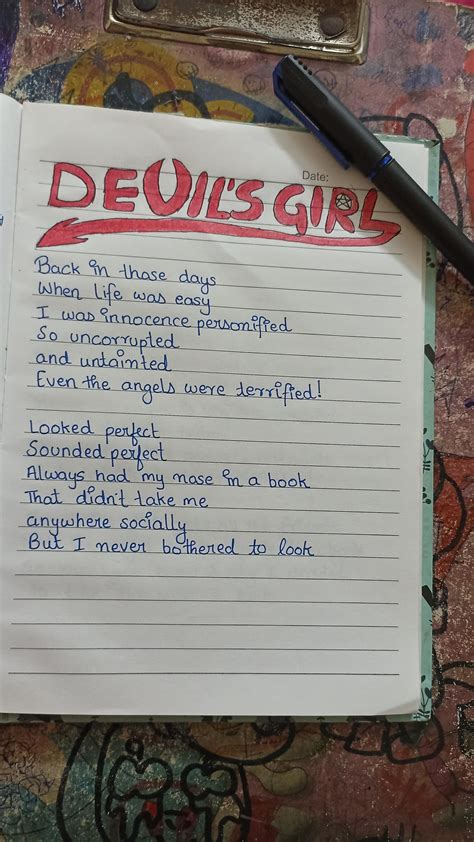 Date:
DEVIL'S GIRL
Back in those days
When life was easy
I was innocence personified
So uncorrupted
and untainted
Even the angels were terrified!
Looked perfect
Sounded perfect
Always had my nose in a book
That didn't take me
anywhere socially
But I never bothered to look